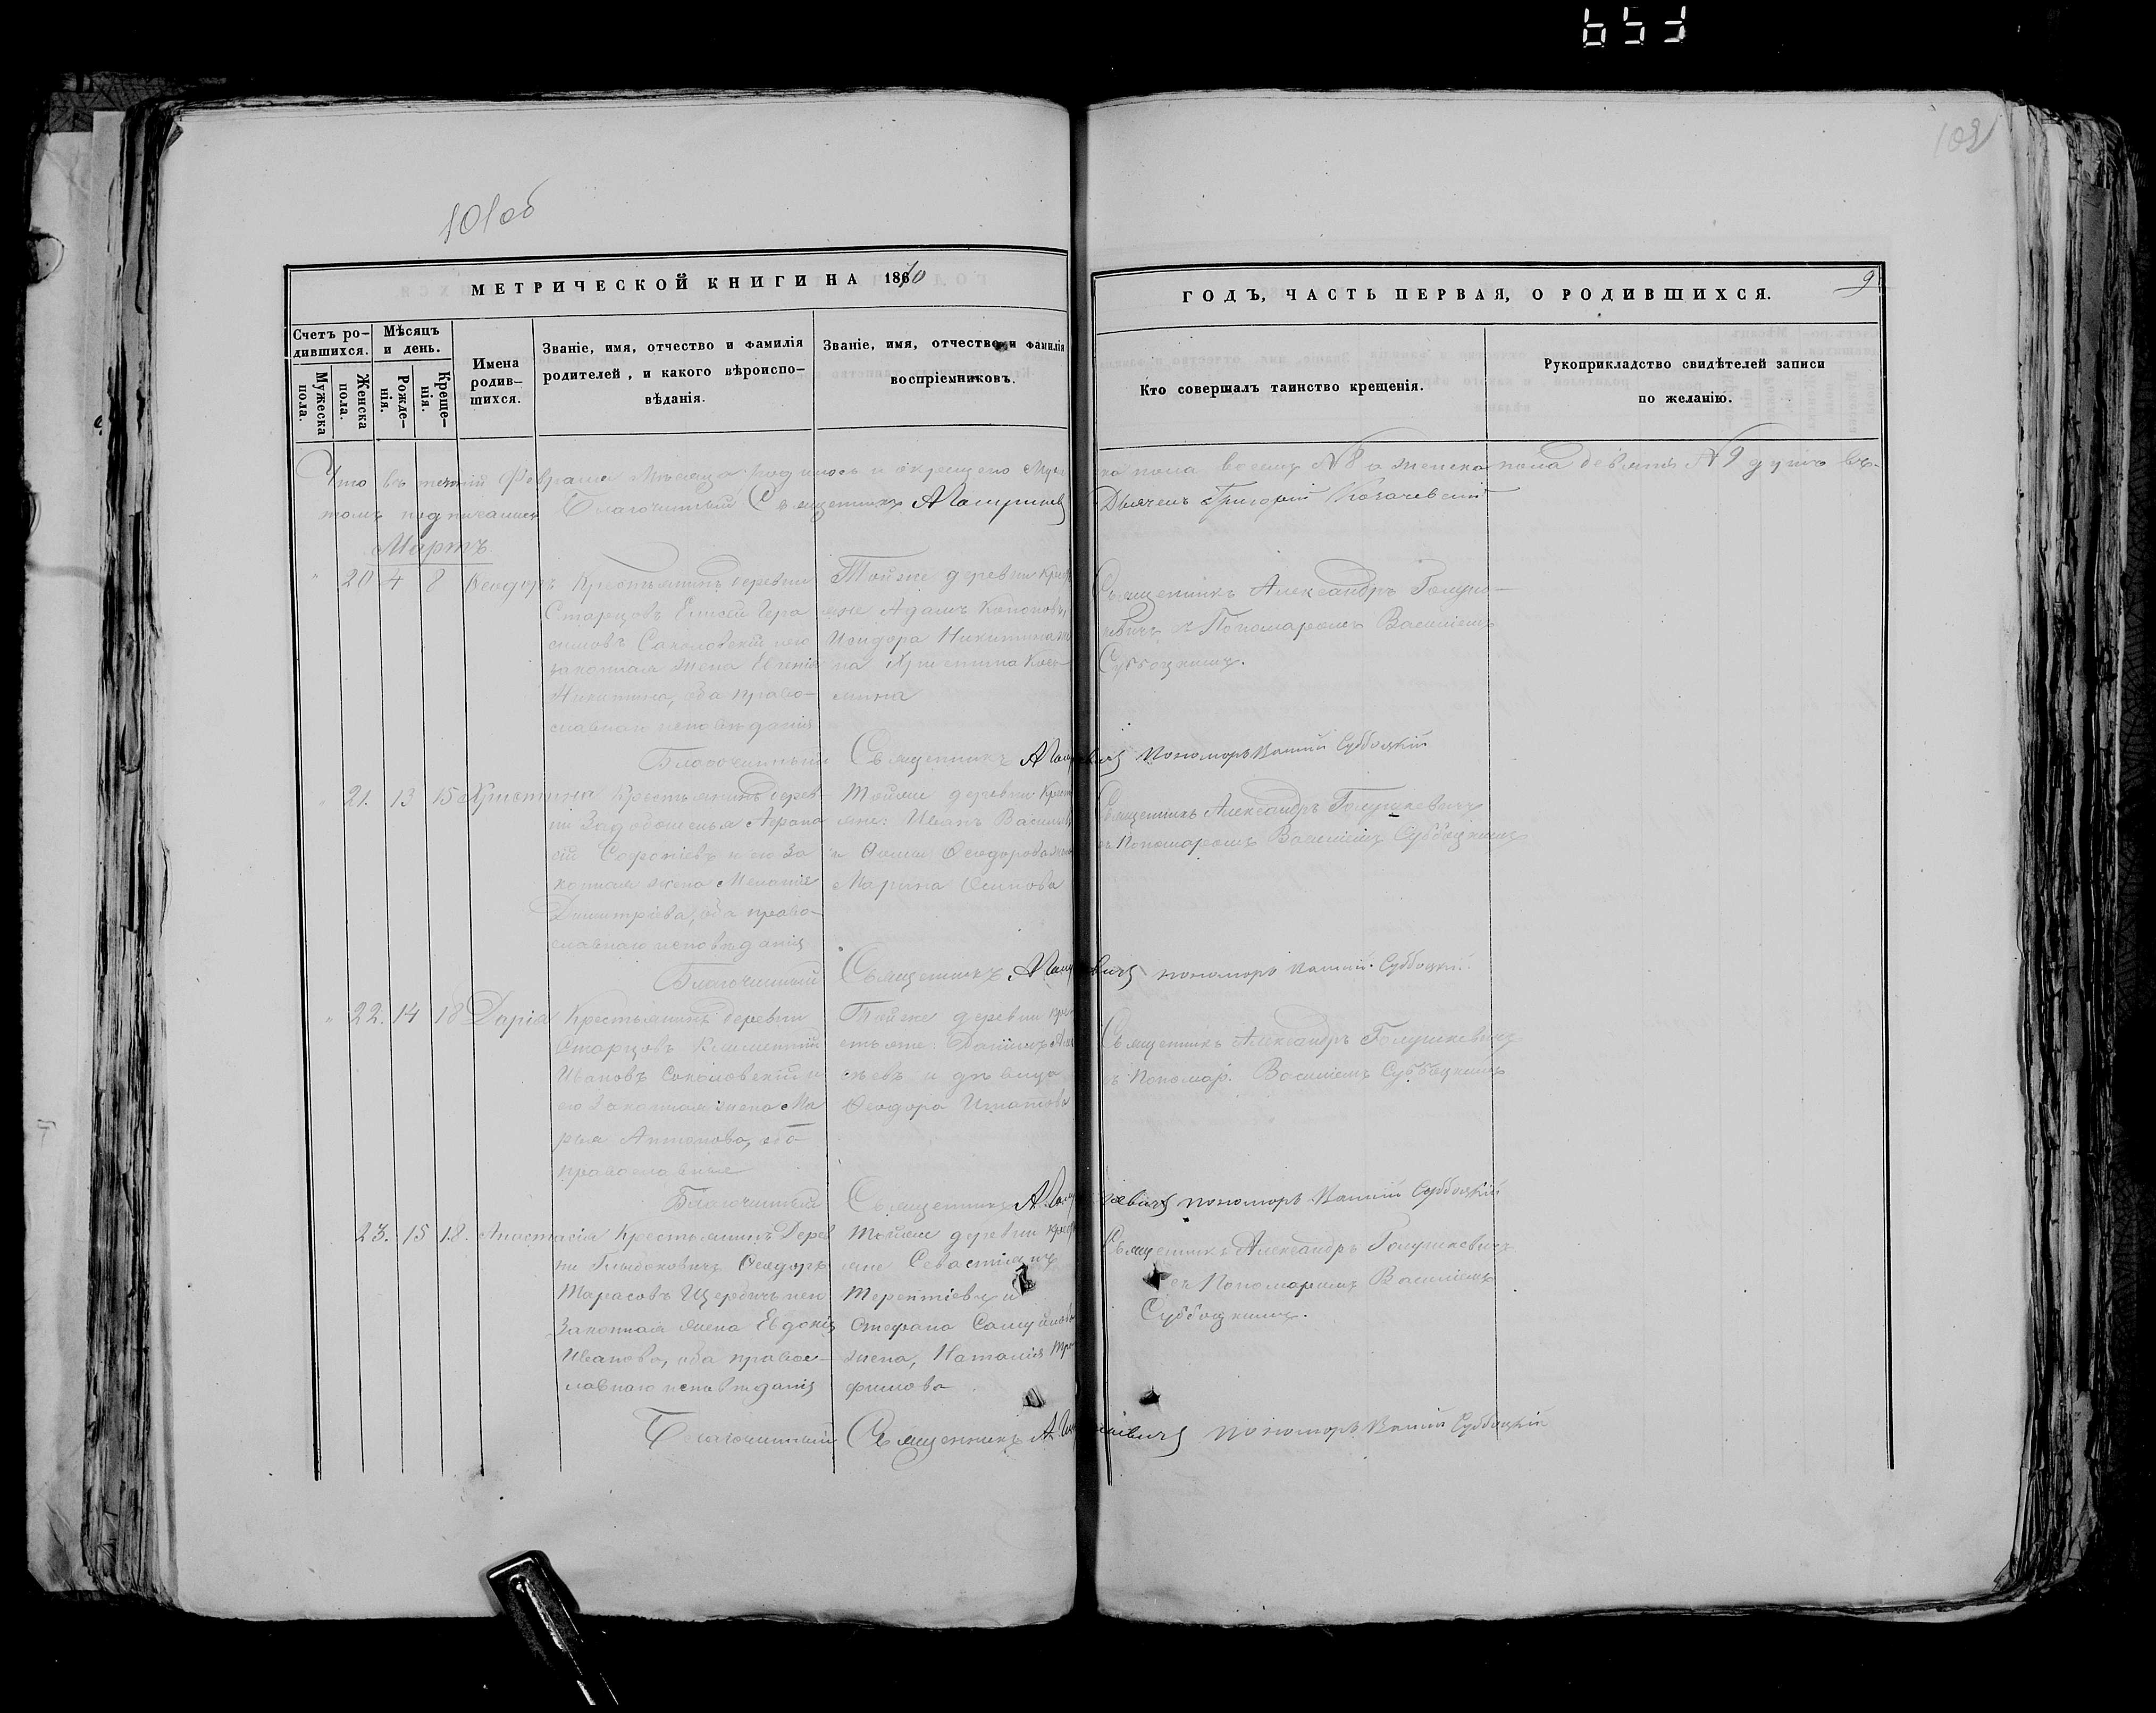 101об
102
МЕТРИЧЕСКОЙ КНИГИ НА 1870
ГОДЪ, ЧАСТЬ ПЕРВАЯ, О РОДИВШИХСЯ.
9
Счетъ ро-
дившихся.
Мужеска
пола.
Женска
пола.
Мѣсяцъ
и день.
Рожде-
нія.
Креще-
нія.
Имена
родив-
шихся.
Званіе, имя, отчество и фамилія
родителей, и какого вѣроиспо-
вѣданія.
Званіе, имя, отчество и фамилія
воспріемниковъ.
Кто совершалъ таинство крещенія.
Рукоприкладство свидѣтелей записи
по желанію.
Что въ теченіи Февраля мѣсяца родилось и окрещено муже
ска пола восемь №8 а женска пола девять №9 душъ въ
томъ подписались Благочинный Священникъ
Дьячекъ Григорій
Мартъ
20 4 8
Крестьянинъ деревни
Старцовъ Елисей Гера
симовъ Соколовскій и его
законная жена Евгенія
Никитина, оба право-
славнаго исповѣданія
Тойже деревни крестья
не Адамъ Кононовъ,
Исидора Никитина же
на Христина Кось-
мина
Священникъ Александръ Голуш-
кевичъ съ Пономаремъ Василіемъ
Субботскимъ.
Благочинный Священникъ
Пономарь Василій Субботскій
21. 13 15 Христина Крестьянинъ дерев-
ни Задобошенья Афана
сій Софоніевъ и его за
конная жена Меланія
Димитріева, оба право-
славнаго исповѣданія
Тойже деревни крестья
не: Иванъ Васильевъ
и Ѳомы Ѳеодорова жена
Марина Осипова
Священникъ Александръ Голушкевичъ
съ Пономаремъ Василіемъ Субботскимъ
Благочинный Священникъ
пономарь Василій Субботскій
22. 14 18 Дарія Крестьянинъ деревни
Старцовъ Климентій
Ивановъ Соколовскій и
его законная жена Ма
рья Антонова, оба
православные
Тойже деревни кре
стьяне: Даніилъ Але
ксѣевъ и дѣвица
Ѳеодора Игнатова
Священникъ Александръ Голушкевичъ
съ Пономар. Василіемъ Субботскимъ
Благочинный Священникъ
пономарь Василій Субботскій
23. 15 18. Анастасія Крестьянинъ дерев
ни Глыбоковичъ Ѳеодоръ
Тарасовъ Щербичъ и его
законная жена Евдокія
Иванова, оба правос-
лавнаго исповѣданія
Тойже деревни крестья
не Севастіянъ
Терентіевъ и
Стефана Самуйлова
жена, Наталія Тро
фимова
Священникъ Александръ Голушкевичъ
съ Пономаремъ Василіемъ
Субботскимъ.
Благочинный Священникъ
пономарь Василій Субботскій